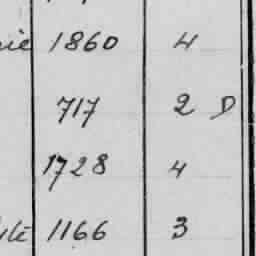 1860 4
717 2 D
1728 4
1166 3